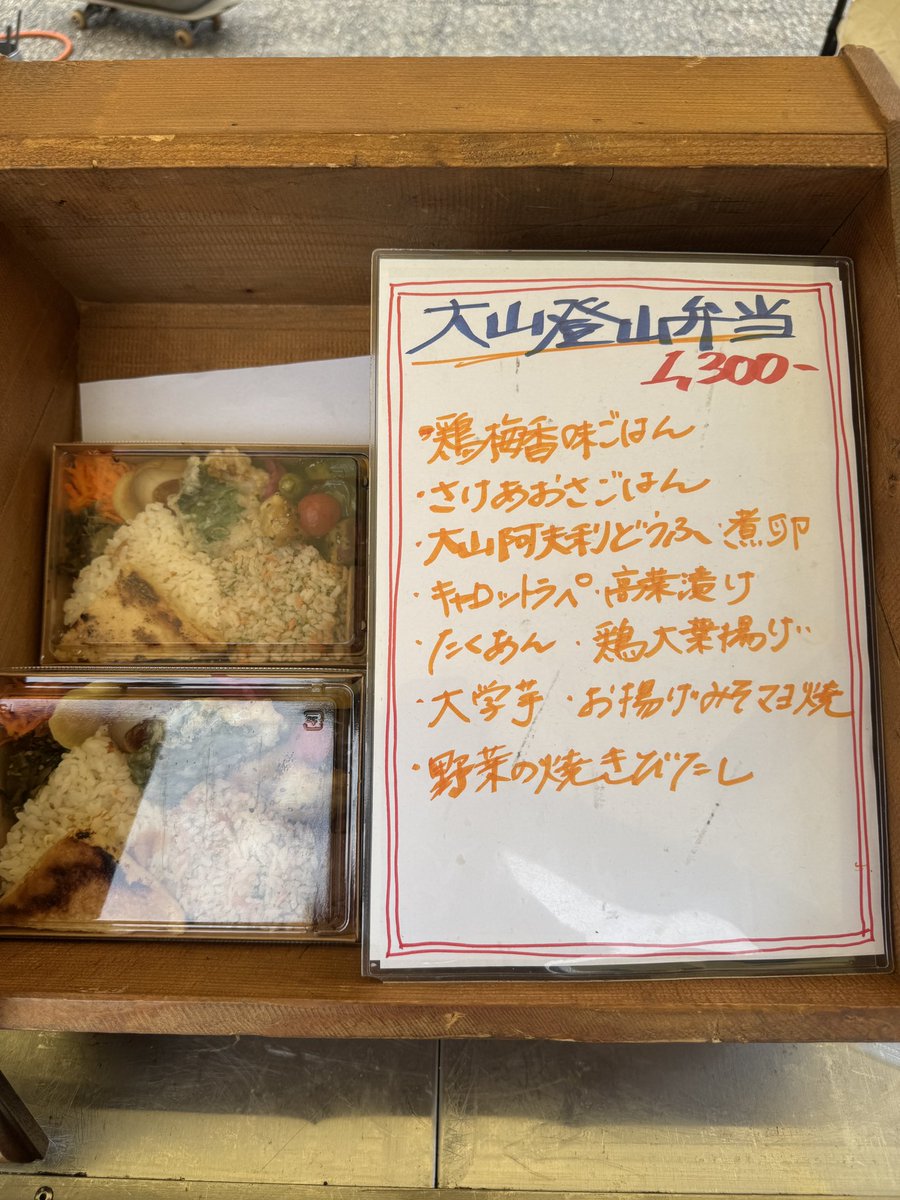 大山登山弁当
1,300-
・鶏梅香味ごはん
・さけあおさごはん
・大山阿夫利どうふ・煮卵
・キャロットラペ・高菜漬け
・たくあん・鶏大葉揚げ
・大学芋・お揚げみそマヨ焼
・野菜の焼きびたし